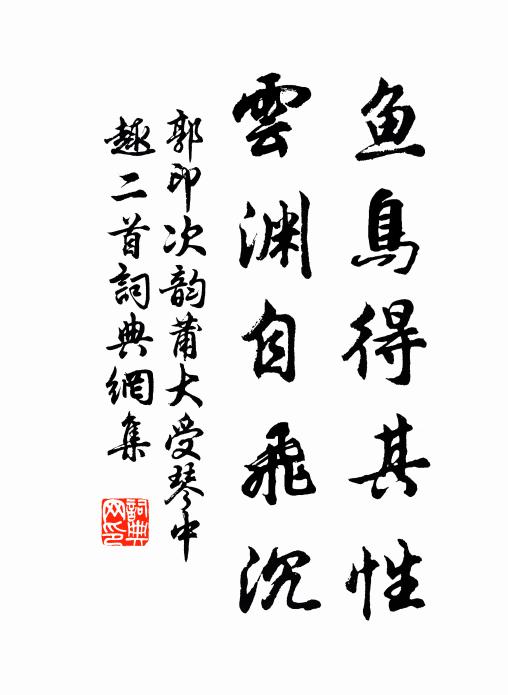 鱼鳥得其性
雲渊自飛沉
郭印次韵蒲大受琴中
趣二首詞典網集
詞典
网印